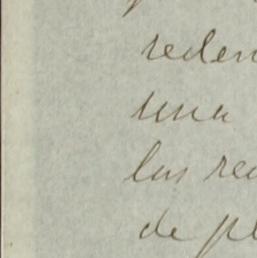 reden
una
las re
de pl